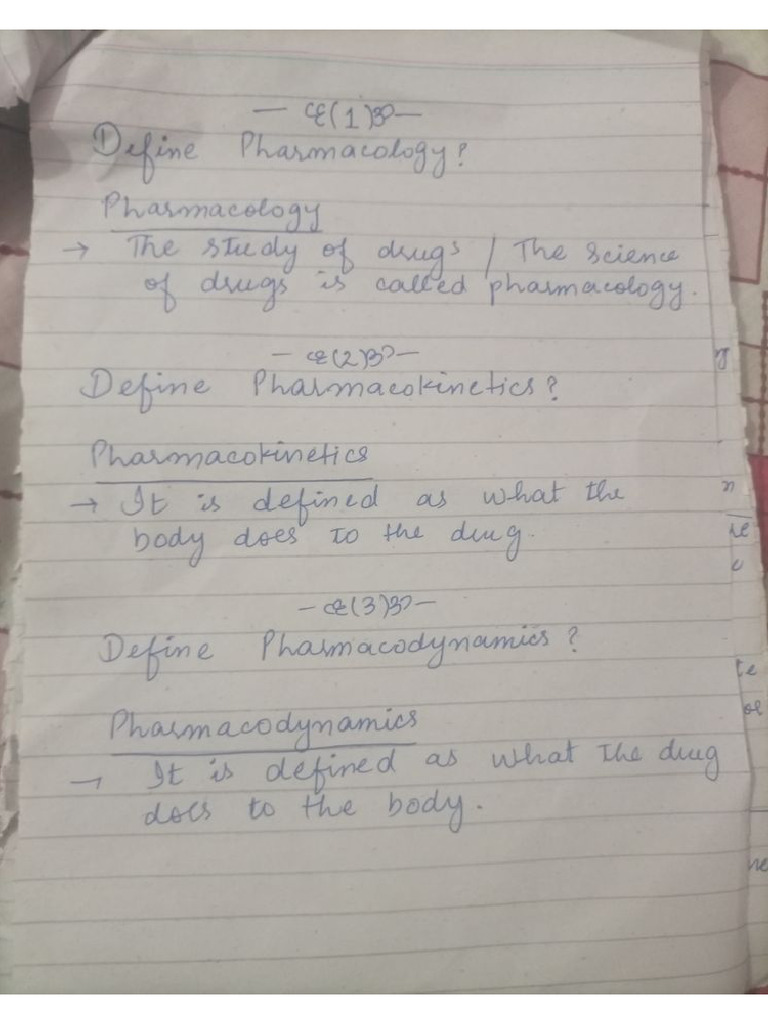 (1)
Define Pharmacology?
Pharmacology
→ The study of drugs / The Science
of drugs is called pharmacology.
(2)
Define Pharmacokinetics?
Pharmacokinetics
→ It is defined as what the
body does to the drug.
(3)
Define Pharmacodynamics?
Pharmacodynamics
→ It is defined as what the drug
does to the body.